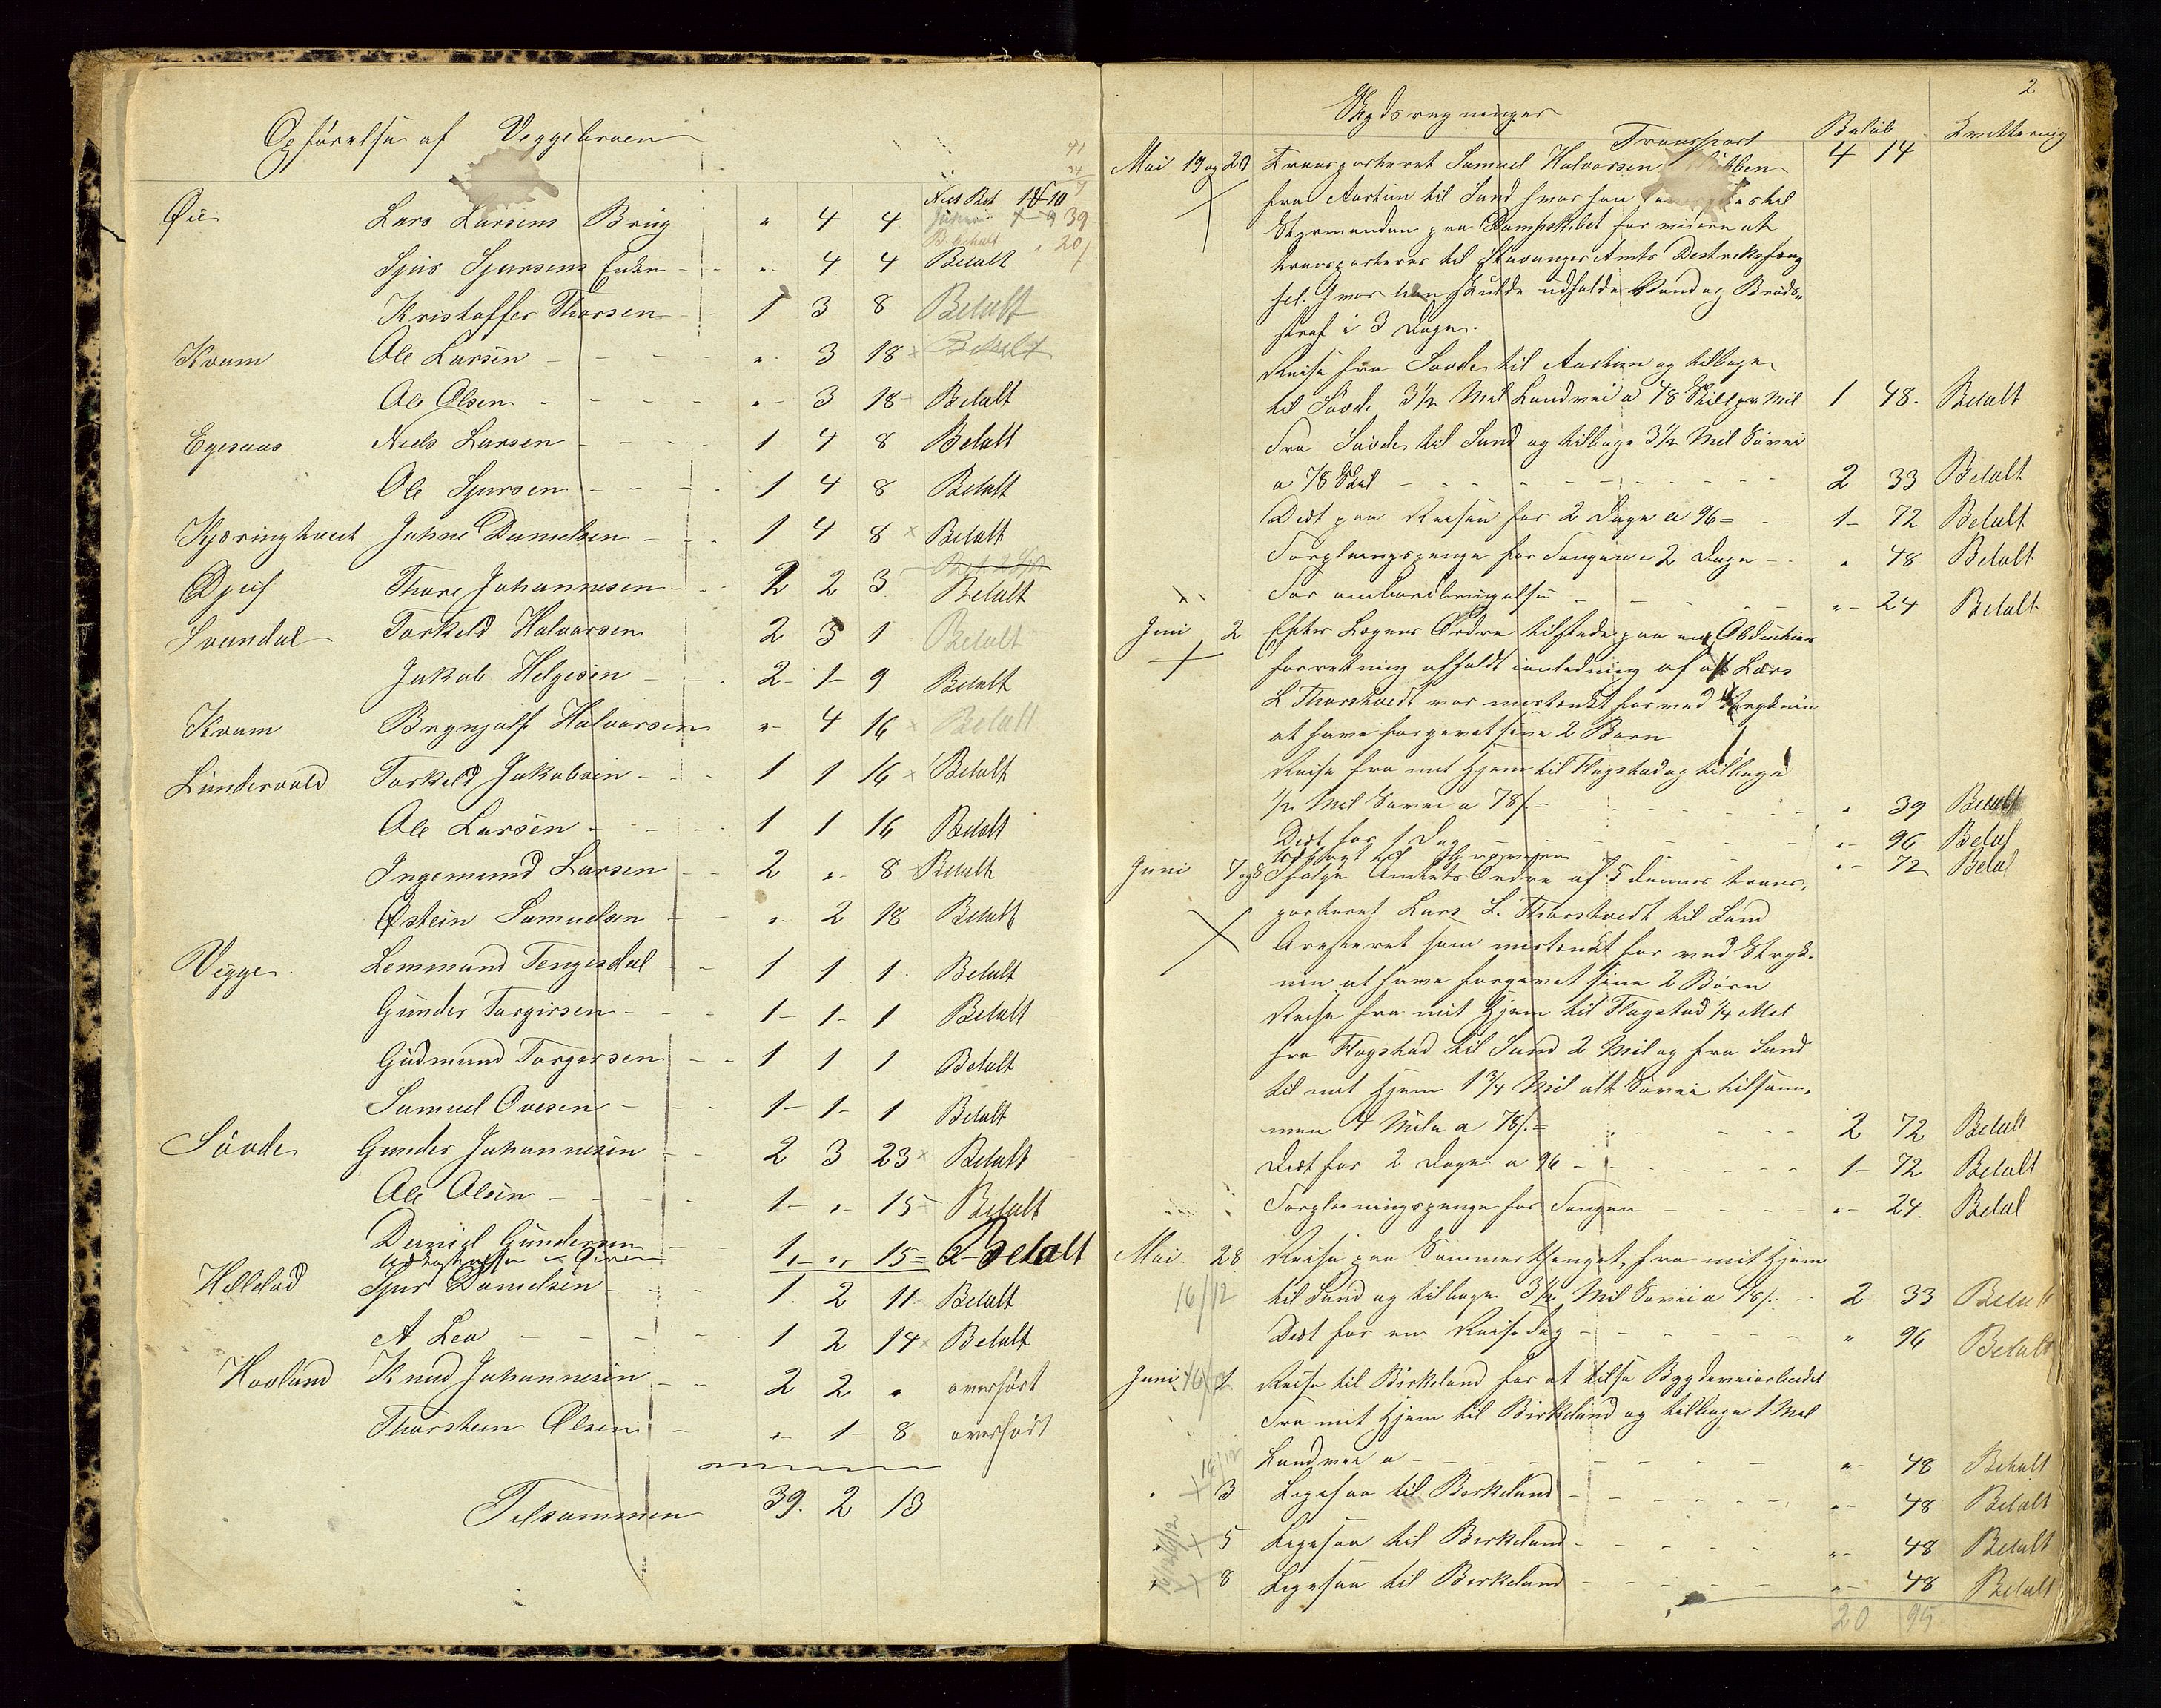 Opførelse af Veggebroen
41
24
7
Øie Lars Larsens Brüg " 4 4
39
20/
Sjur Sjursens Enke - " 4 4 Betalt
Kristoffer Thorsen 1 3 8 Betalt
Kvam Ole Larsen - - - - " 3 18 Betalt
Ole Olsen - - - - " - 3 18 Betalt
Egesaas Niels Larsen - - - - 1 4 8 Betalt
Ole Sjursen - - - - 1 4 8 Betalt
Kjøringtveit Johne Danielsen - - - 1 4 8 Betalt
Djuf Thore Johannesen - - 2 2 3 Betalt
Svandal Torkeld Halvorsen 2 3 1 Betalt
Jakob Helgesen - - - 2 - 1 - 9 Betalt
Kvam Brynjolf Halvorsen " - 4 16 Betalt
Lündervold Torkeld Jakobsen - - - 1 1 16 Betalt
Ole Larsen - - - - 1 1 16 Betalt
Ingemund Larsen - - 2 " - 8 Betalt
Østein Samuelsen - - " - 2 18 Betalt
Vegge Lemmand Tengesdal - 1 1 1 Betalt
Günder Torgirsen - - - 1 - 1 - 1 Betalt
Güdmund Torgersen - - 1 1 1 Betalt
Samuel Ovesen - - - 1 - 1 - 1 Betalt
Søvde Gunder Johannesen - - 2 3 23 Betalt
Ole Olsen - - - - 1 - " - 15 - Betalt
Daniel Gundersen - 1 " - " - 15 = Betalt
Hellelad Sjur Danielsen - - 1 2 11 Betalt
A Lea - - - - 1 2 14 Betalt
Hovland Knud Johannesen - - 2 2 " overført
Thorstein Olsen - " - 1 - 8 overført
Tilsammen 39. 2 13
2
Skydsregninger
Transport Beløb Kvittering
4 14
Mai 19 og 20 Transporteret Samuel Halvorsen
fra Austim til Sand hvor han
Styrmanden paa Dampskibet for videre at
transporteres til Stavanger Amts Destriktsfæng
sel. hvor han skulde udholde Vand og Brøds
straf i 3 Dage.
Reise fra Søvde til Austim og tilbage
til Søvde 3½ Mil Landvei a 48 Skill pr Mil 1 48. Betalt
Fra Søvde til Sand og tilbage 3½ Mil Søvei
a 78 Skil - - - - - - - - 2 33 Betalt
Diæt paa Reisen for 2 Dage a 96 = - - 1 - 72 Betalt
Forpleiningspenge for Fangen i 2 Dage - - " 48 Betalt
For ombordbringelse - - - - - " - 24 Betalt
Juni 2 Efter Lægens Ordre tilstede paa en Obductions
forretning afholdt i anledning af at Lars
L Thorstvedt var mistænkt for ved Stryknin
at have forgivet sine 2 Børn
Reise fra mit Hjem til Flogstad og tilbage
½ Mil Søvei a 78/. = - - - - - " 39 Betalt
Diæt for 1 Dag - - - - - " - 96 Betal
" - 72 Betal
Juni 7 og 8 Ifølge Amtets Ordre af 5 dennes trans-
porteret Lars L. Thorstvedt til Sand
Aresteret som mistænkt for ved Stryk-
nin at have forgivet sine 2 Børn
Reise fra mit Hjem til Flogstad ¼ Mil
fra Flogstad til Sand 2 Mil og fra Sand
til mit Hjem 1¾ Mil alt Søvei tilsam-
men 4 Mile a 78/. = - - - - 2 72 Betalt
Diæt for 2 Dage a 96 - - - - - 1 - 72 Betalt
Forpleiningspenge for Fangen - - - - " - 24. Betal
Mai 28 Reise paa Sommerthinget, fra mit Hjem
16/12 til Sand og tilbage 3½ Mil Søvei a 78/. - - 2 33 Betalt
Diæt for en Reisedag - - - - - " 96 Betalt
Juni 1 Reise til Birkeland for at tilse Bygdeveiarbeidet
Fra mit Hjem til Birkeland og tilbage 1 Mil
Landvei a - - - - - - - " - 48 Betalt
" 3 Ligesaa til Berkeland - - - - - " - 48 Betalt
" 5 Ligesaa til Berkeland - - - - - " - 48 Betalt
" 8 Ligesaa til Berkeland - - - - - " - 48 Betalt
20 95